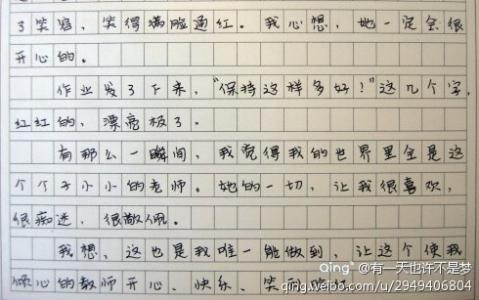 了笑容，笑得满脸通红。我心想，她一定会很
开心的。
作业发了下来，“保持这样多好！”这几个字，
红红的，漂亮极了。
有那么一瞬间，我觉得我的世界里全是这
个个子小小的老师。她的一切，让我很喜欢，
很痴迷，很敬佩。
我想，这也是我唯一能做到，让这个使我
倾心的教师开心、快乐、笑
Qing @有一天也许不是梦
qing.weibo.com/u/2949406804